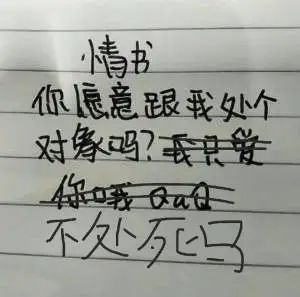 情书
你愿意跟我处个
对象吗?我只爱
你哦QaQ
不处死吗